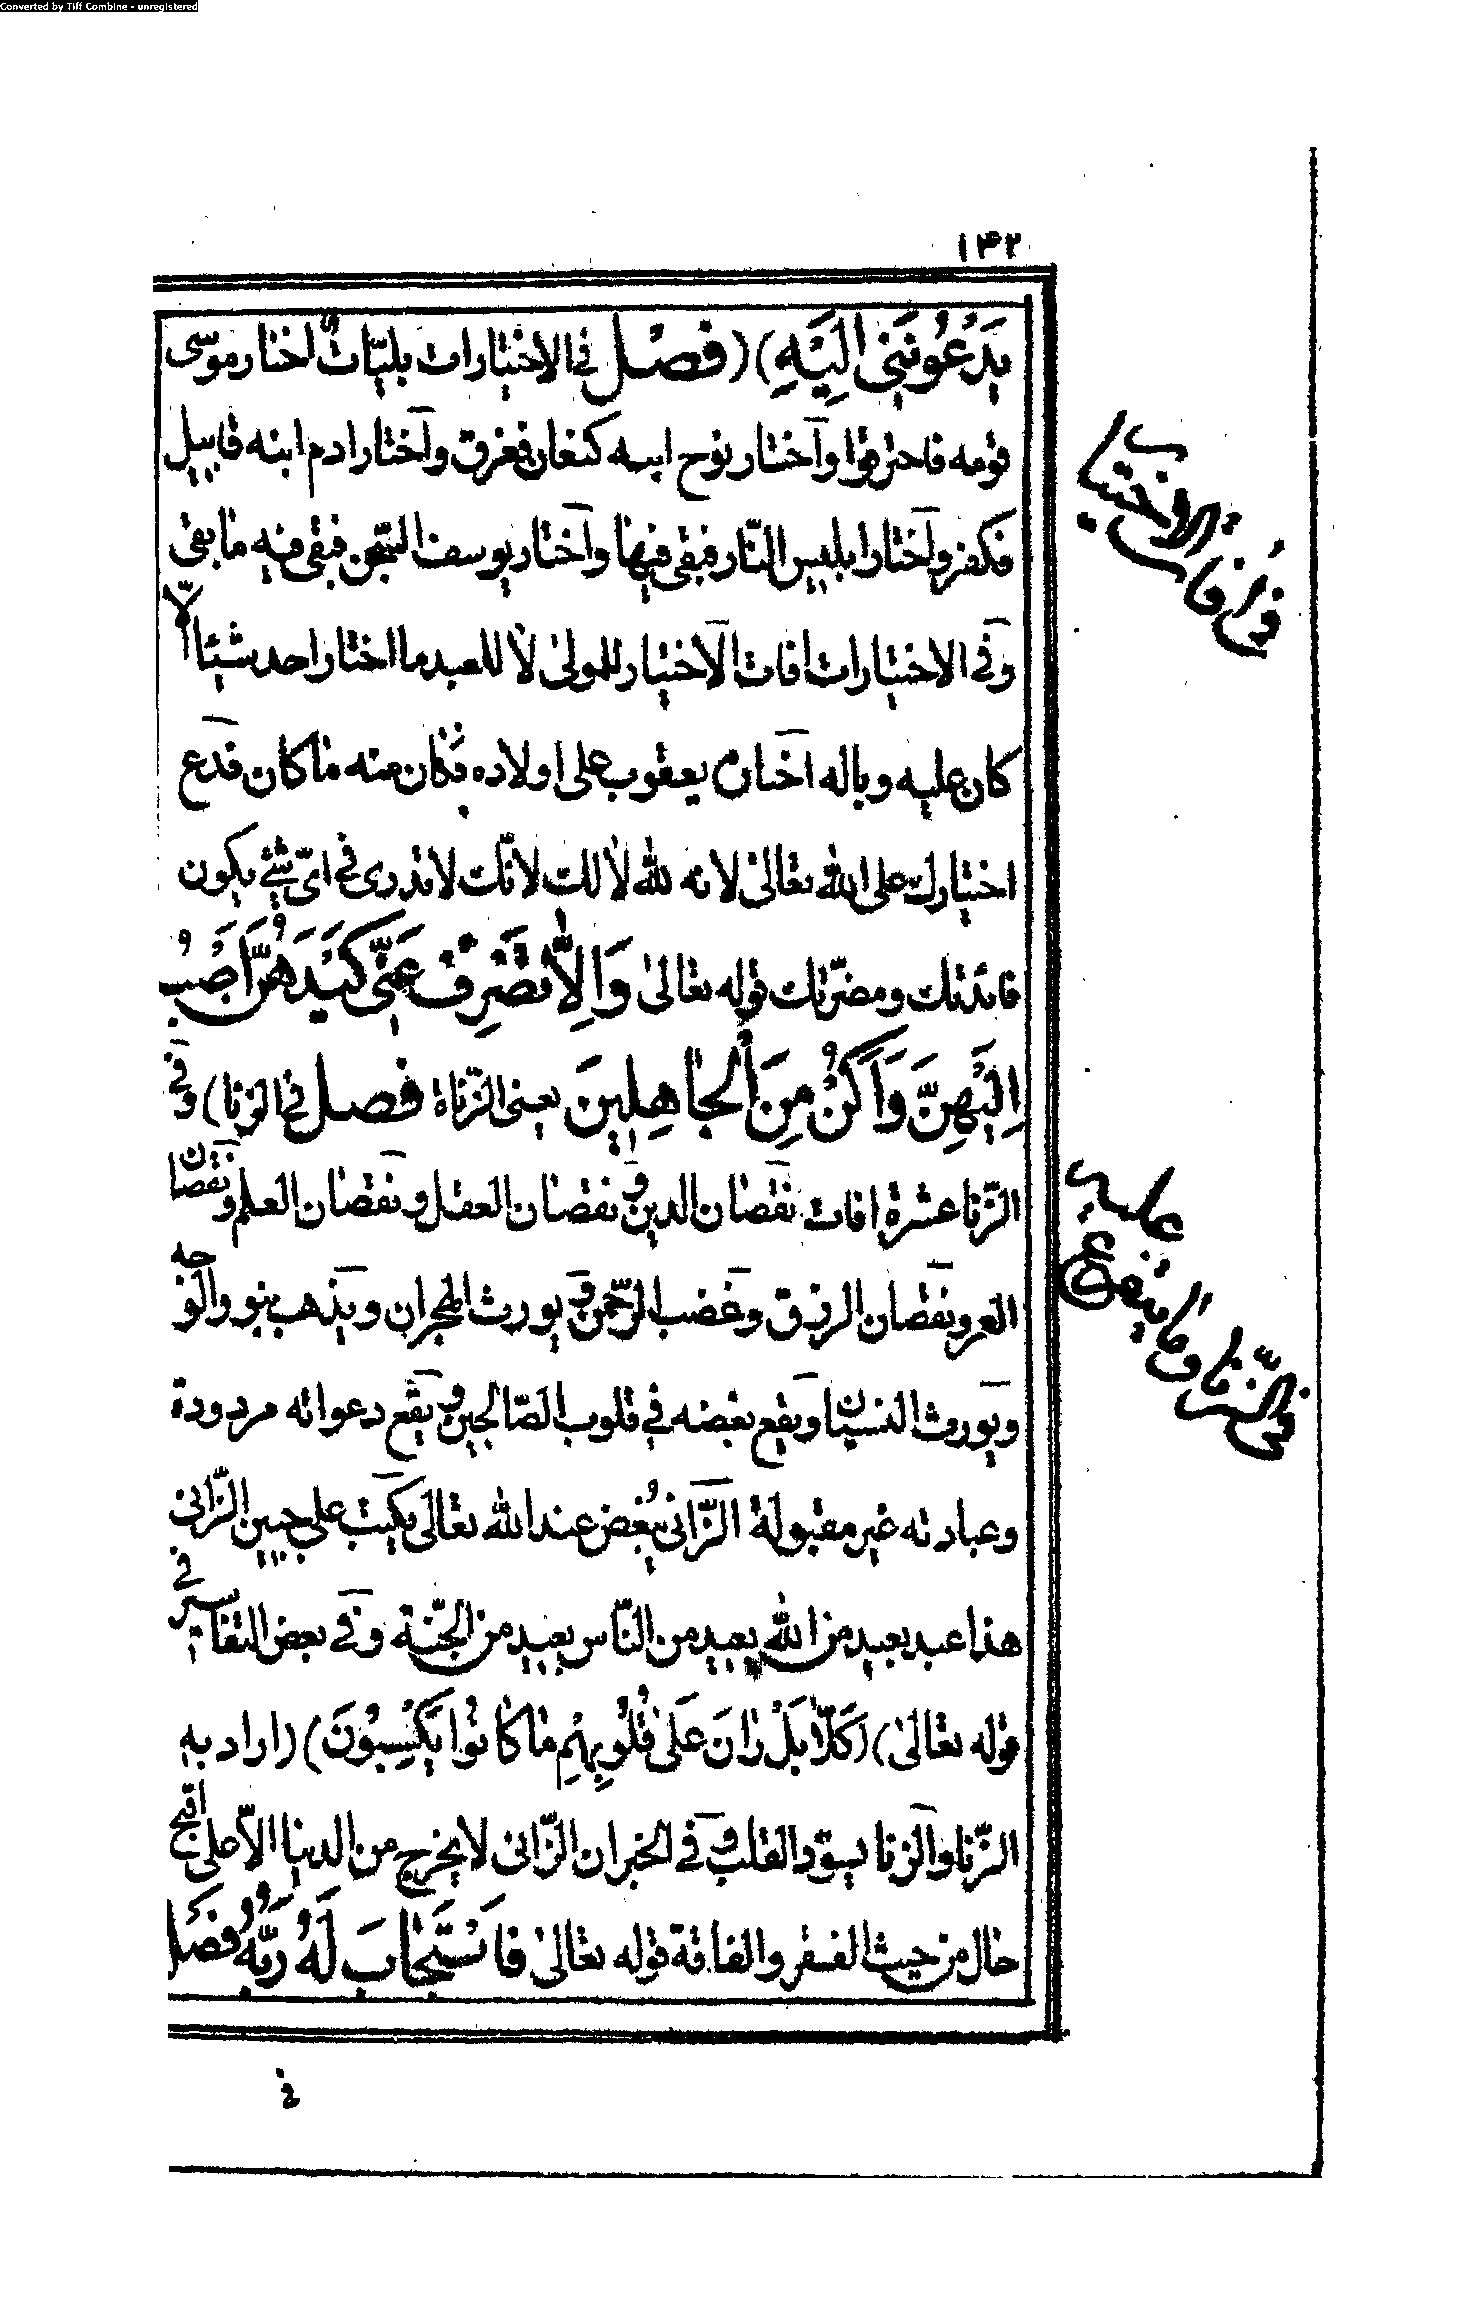 Converted by Tiff Combine - unregistered
۱۴۲
يَدْعُونَنِي اِلَيْهِ) (فصل في الاختيارات بليّات اختار موسى
قومه فاحترقوا واختار نوح ابنه كنعان فغرق واختار ادم ابنه قابيل
فكفر واختار ابليس النّار فبقى فيها واختار يوسف السّجن فبقى فيه ما بقى
وفي الاختيارات افات الاختيار للمولى لا للعبد ما اختار احد شيئا الّا
كان عليه وباله اختار يعقوب على اولاده فكان منه ما كان فدع
اختيارك على الله تعالى لانه لله لا لك لانّك لا تدرى في اىّ شئ يكون
فائدتك ومضرّتك قوله تعالى وَاِلَّا تَصْرِفْ عَنِّى كَيْدَهُنَّ اَصْبُ
اِلَيْهِنَّ وَاَكُنْ مِنَ الْجَاهِلِينَ يعنى الزّناة فصل في الزنا) وفي
الزّنا عشرة افات نقصان الدين ونقصان العقل ونقصان العلم ونقصان
العمر ونقصان الرزق وغضب الرّحمن ويورث الهجران ويذهب بنور الوجه
ويورث النسيان ويقع بغضه في قلوب الصّالحين ويقع دعواته مردودة
وعبادته غير مقبولة الزّانى يبغض عند الله تعالى يكتب على جبين الزّانى
هذا عبد بعيد من الله بعيد من النّاس بعيد من الجنّة وفي بعض التفاسير في
قوله تعالى) (كَلَّا بَلْ رَانَ عَلَى قُلُوبِهِمْ مَا كَانُوا يَكْسِبُونَ) (اراد به
الزّنا والزنا يسوّد القلب وفي الخبر ان الزّانى لا يخرج من الدنيا الّا على اقبح
حال من حيث الفقر والفاقة قوله تعالى فَاسْتَجَابَ لَهُ رَبُّهُ فصل
في
في افات الاختيار
في الزنا وما يتفرع
عليه